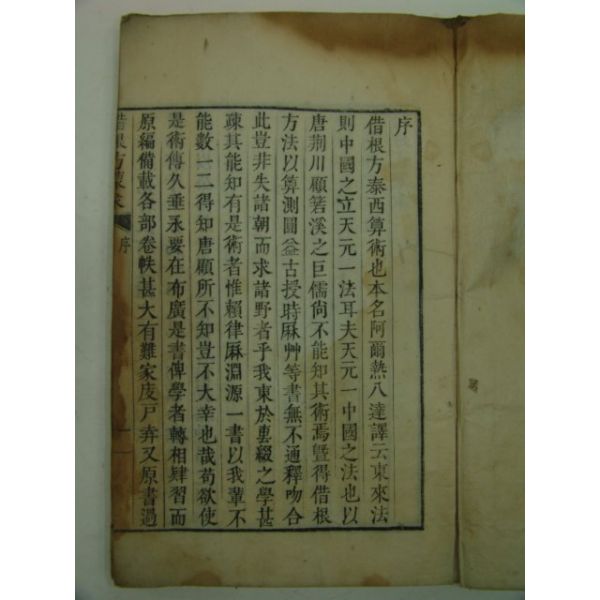 序
借根方泰西算術也本名阿爾熱八達譯云東來法
則中國之立天元一法耳夫天元一中國之法也以
唐荆川顧箬溪之巨儒尙不能知其術焉曁得借根
方法以算測圓益古授時厤艸等書無不通釋吻合
此豈非失諸朝而求諸野者乎我東於裏綴之學甚
疎其能知有是術者惟賴律厤淵源一書以我輩不
能數一二得知唐顧所不知豈不大幸也哉苟欲使
是術傳久垂永要在布廣是書俾學者轉相肄習而
原編備載各部卷帙甚大有難家庋戸弆又原書過
借根方蒙求 序